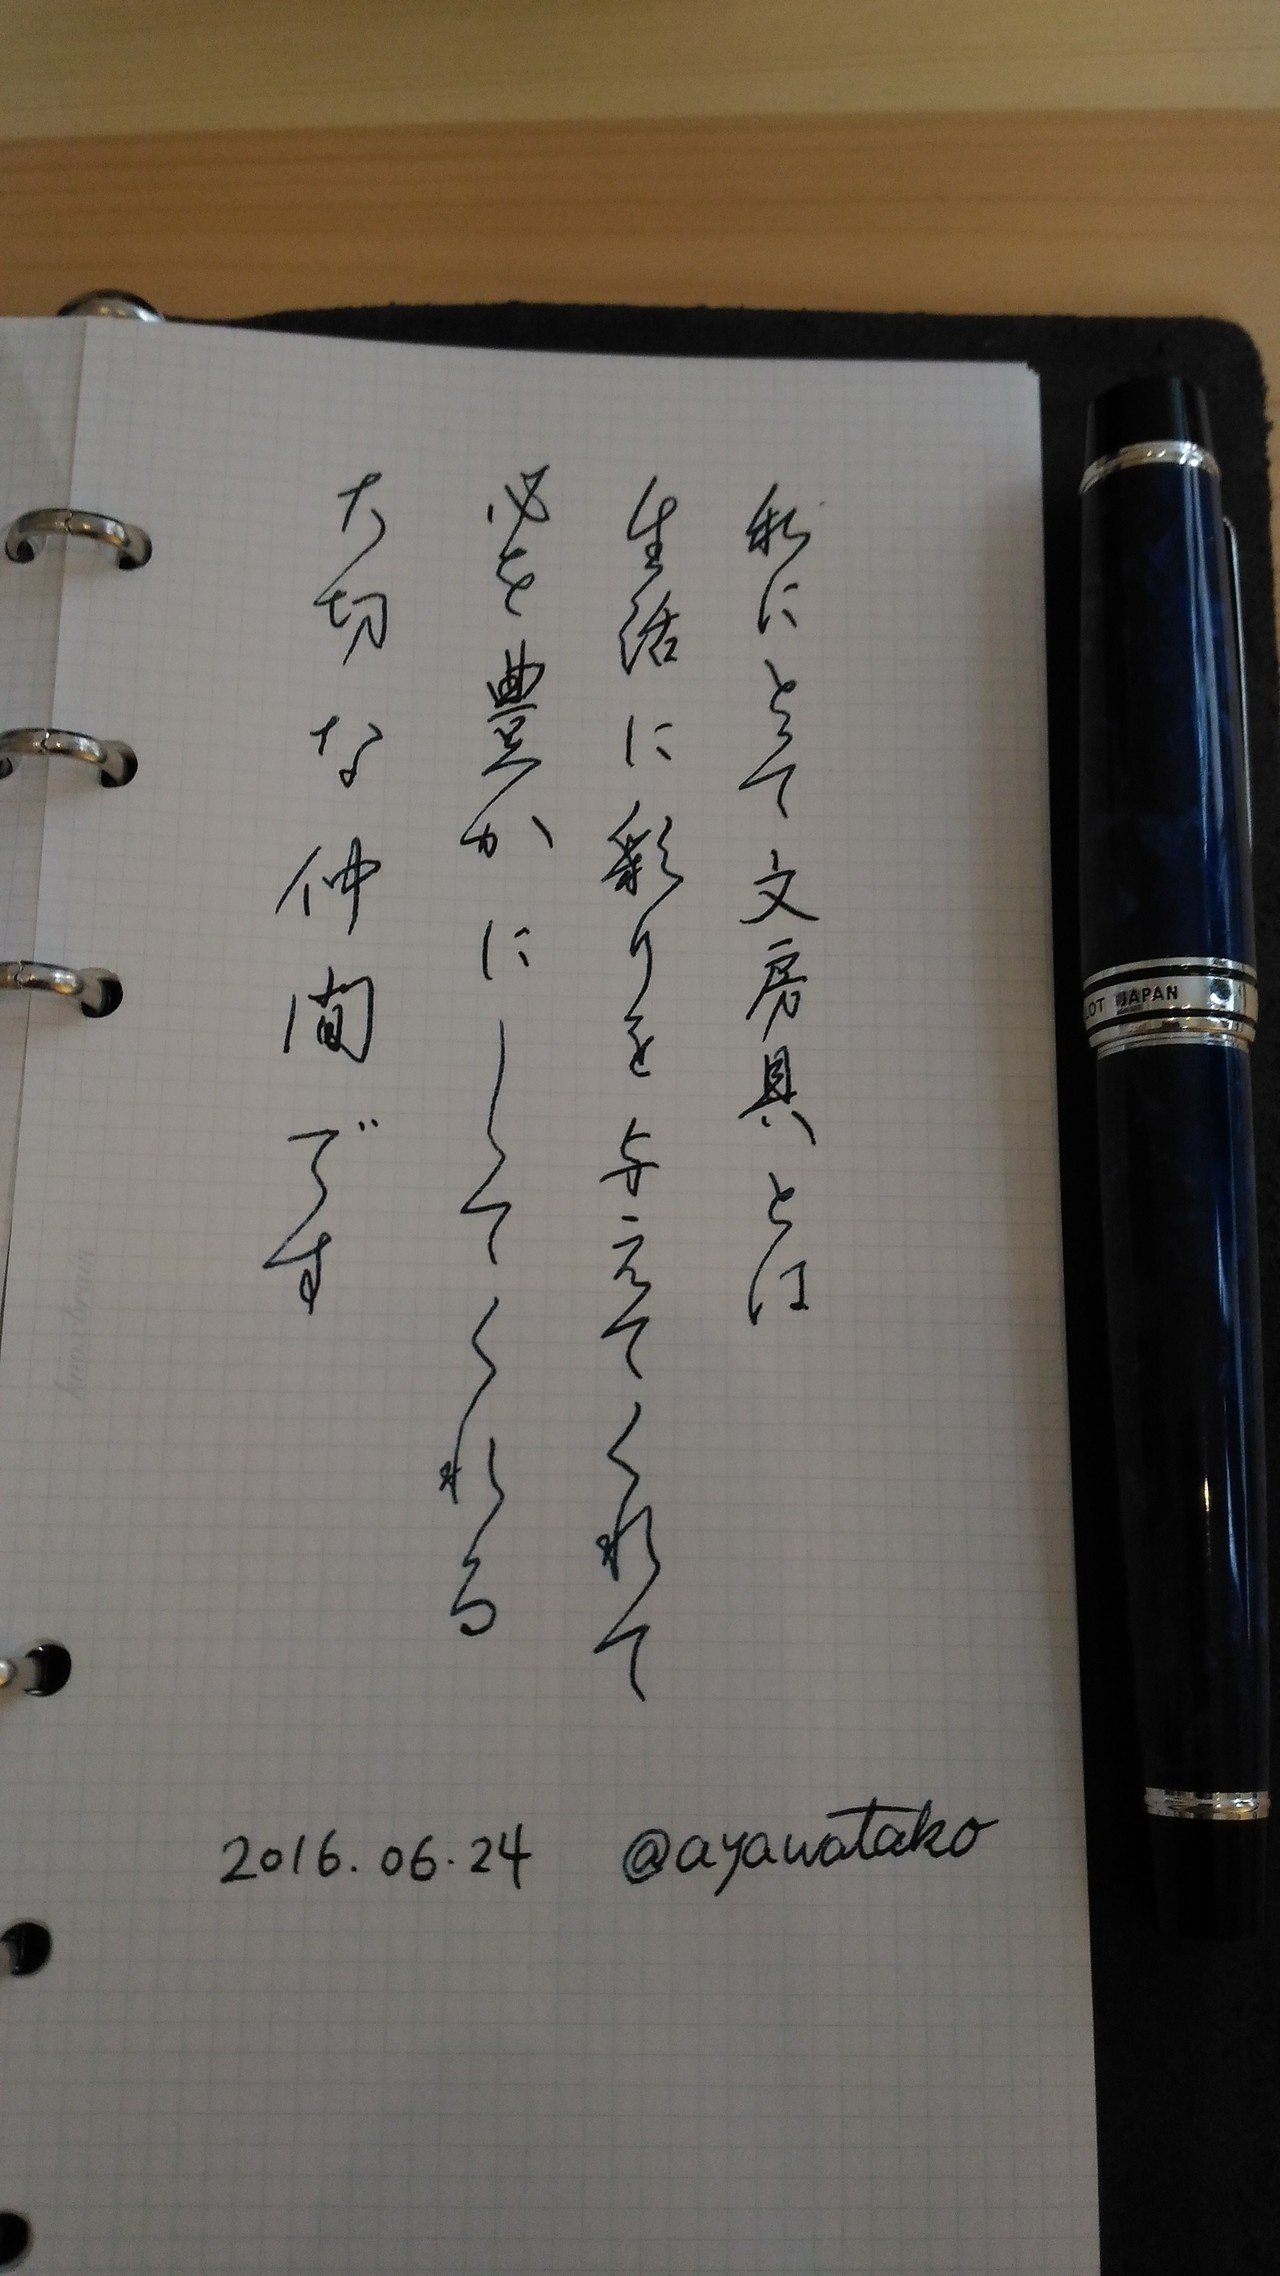 私にとって文房具とは
生活に彩りを与えてくれて
心を豊かにしてくれる
大切な仲間です
2016.06.24 @ayawatako
LOT JAPAN